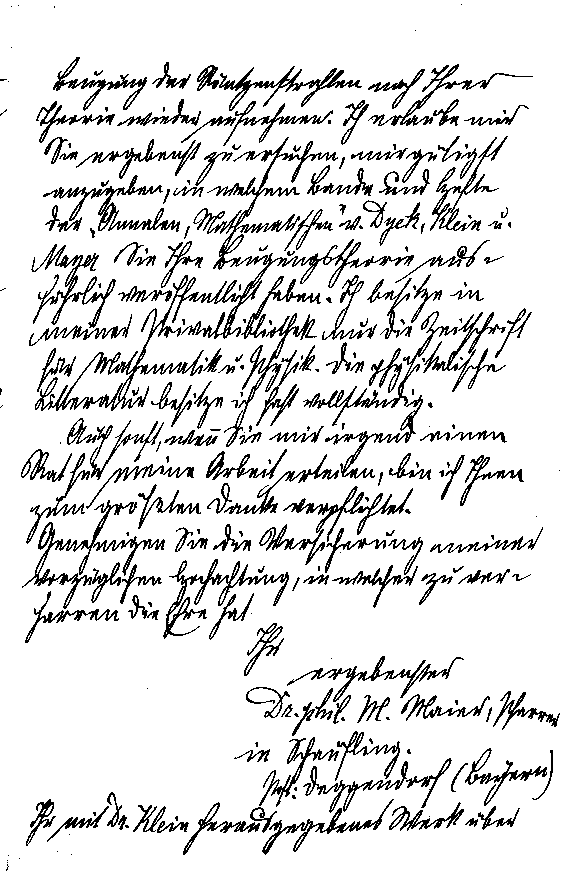 Beugung der Röntgenstrahlen nach Ihrer
Theorie wieder aufnehmen. Ich erlaube mir
Sie ergebenst zu ersuchen, mir gütigst
anzugeben, in welchem Bande und Hefte
der „Annalen, Mathematischen" v. Dyck, Klein u.
Mayer Sie Ihre Beugungstheorie aus-
führlich veröffentlicht haben. Ich besitze in
meiner Privatbibliothek nur die Zeitschrift
für Mathematik u. Physik. Die physikalische
Litteratur besitze ich fast vollständig.
Auch sonst, wenn Sie mir irgend einen
Rat für meine Arbeit erteilen, bin ich Ihnen
zum größten Danke verpflichtet.
Genehmigen Sie die Versicherung meiner
vorzüglichen Hochachtung, in welcher zu ver-
harren die Ehre hat
Ihr
ergebenster
Dr. phil. M. Maier, Pfarrer
in Schaufling.
Post: Deggendorf (Bayern)
Ihr mit Dr. Klein herausgegebenes Werk über